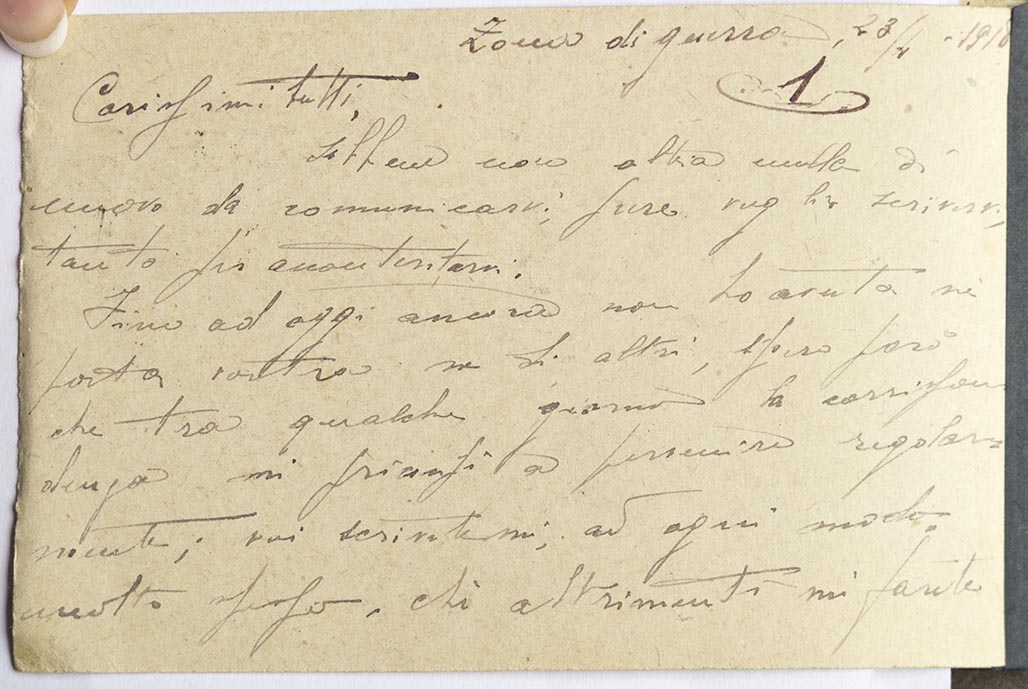 Zona di guerra, 23/ - 191
1
Carissimi tutti,
Sebbene non altra nulla di
nuovo da comunicarvi, pure voglio scrivervi,
tanto per accontentarvi.
Fino ad oggi ancora non ho avuta ne
posta vostra ne di altri, spero però
che tra qualche giorno la corrispon
denza mi principi a pervenire regolar=
mente; voi scrivetemi, ad ogni modo,
molto spesso, chè altrimenti mi farete